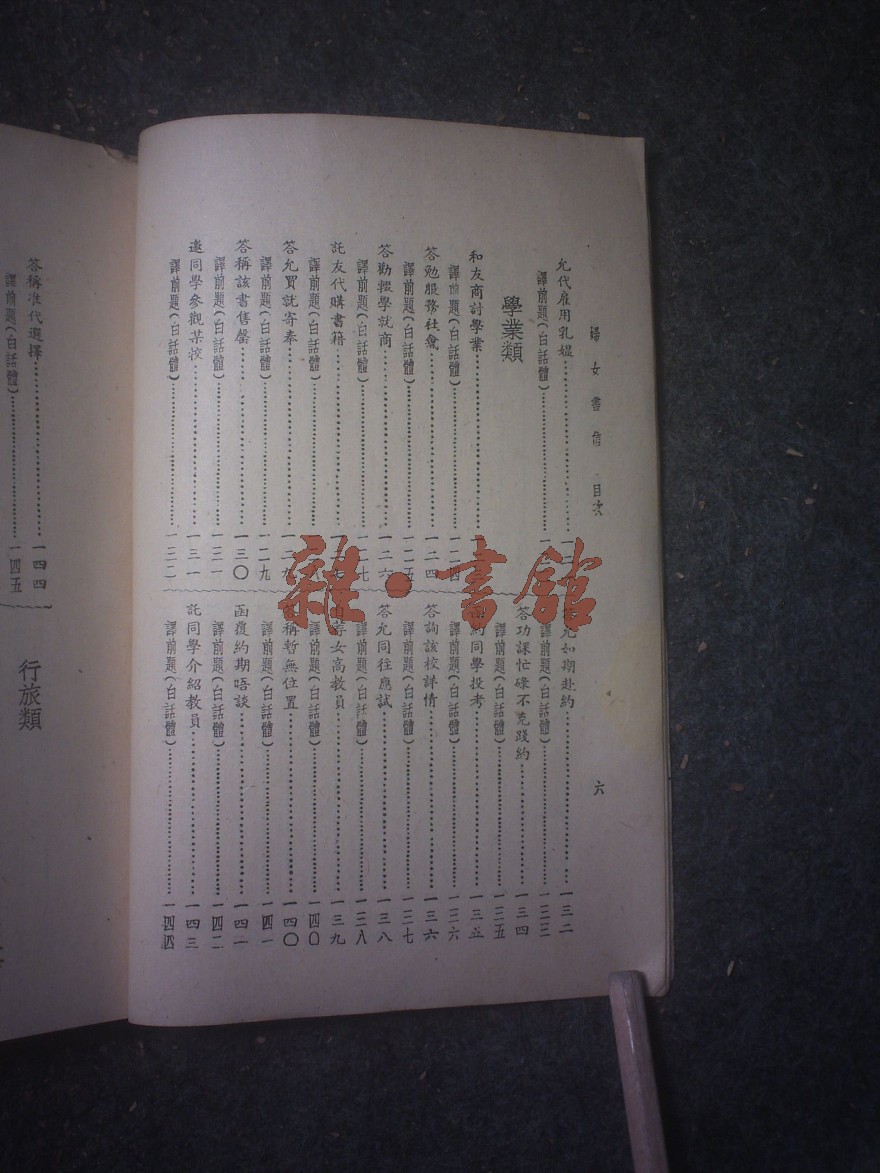 婦女書信 目次
六
允代雇用乳媼 一二
譯前題(白話體) 一
學業類
和友商討學業
譯前題(白話體) 一二四
答勉服務社會 一二四
譯前題(白話體) 一二五
答勸輟學就商 一二六
譯前題(白話體) 一二七
託友代購書籍
譯前題(白話體)
答允買就寄奉 一二九
譯前題(白話體) 一二九
答稱該書售罄 一三〇
譯前題(白話體) 一三一
邀同學參觀某校 一三一
譯前題(白話體) 一三二
允如期赴約 一三二
譯前題(白話體) 一三三
答功課忙碌不克踐約 一三四
譯前題(白話體) 一三五
約同學投考 一三五
譯前題(白話體) 一三六
答詢該校詳情 一三六
譯前題(白話體) 一三七
答允同往應試 一三八
譯前題(白話體) 一三八
女高教員 一三九
譯前題(白話體) 一四〇
答稱暫無位置 一四〇
譯前題(白話體) 一四一
函覆約期晤談 一四一
譯前題(白話體) 一四二
託同學介紹教員 一四三
譯前題(白話體) 一四四
答稱准代選擇 一四四
譯前題(白話體) 一四五
行旅類
雜·書館